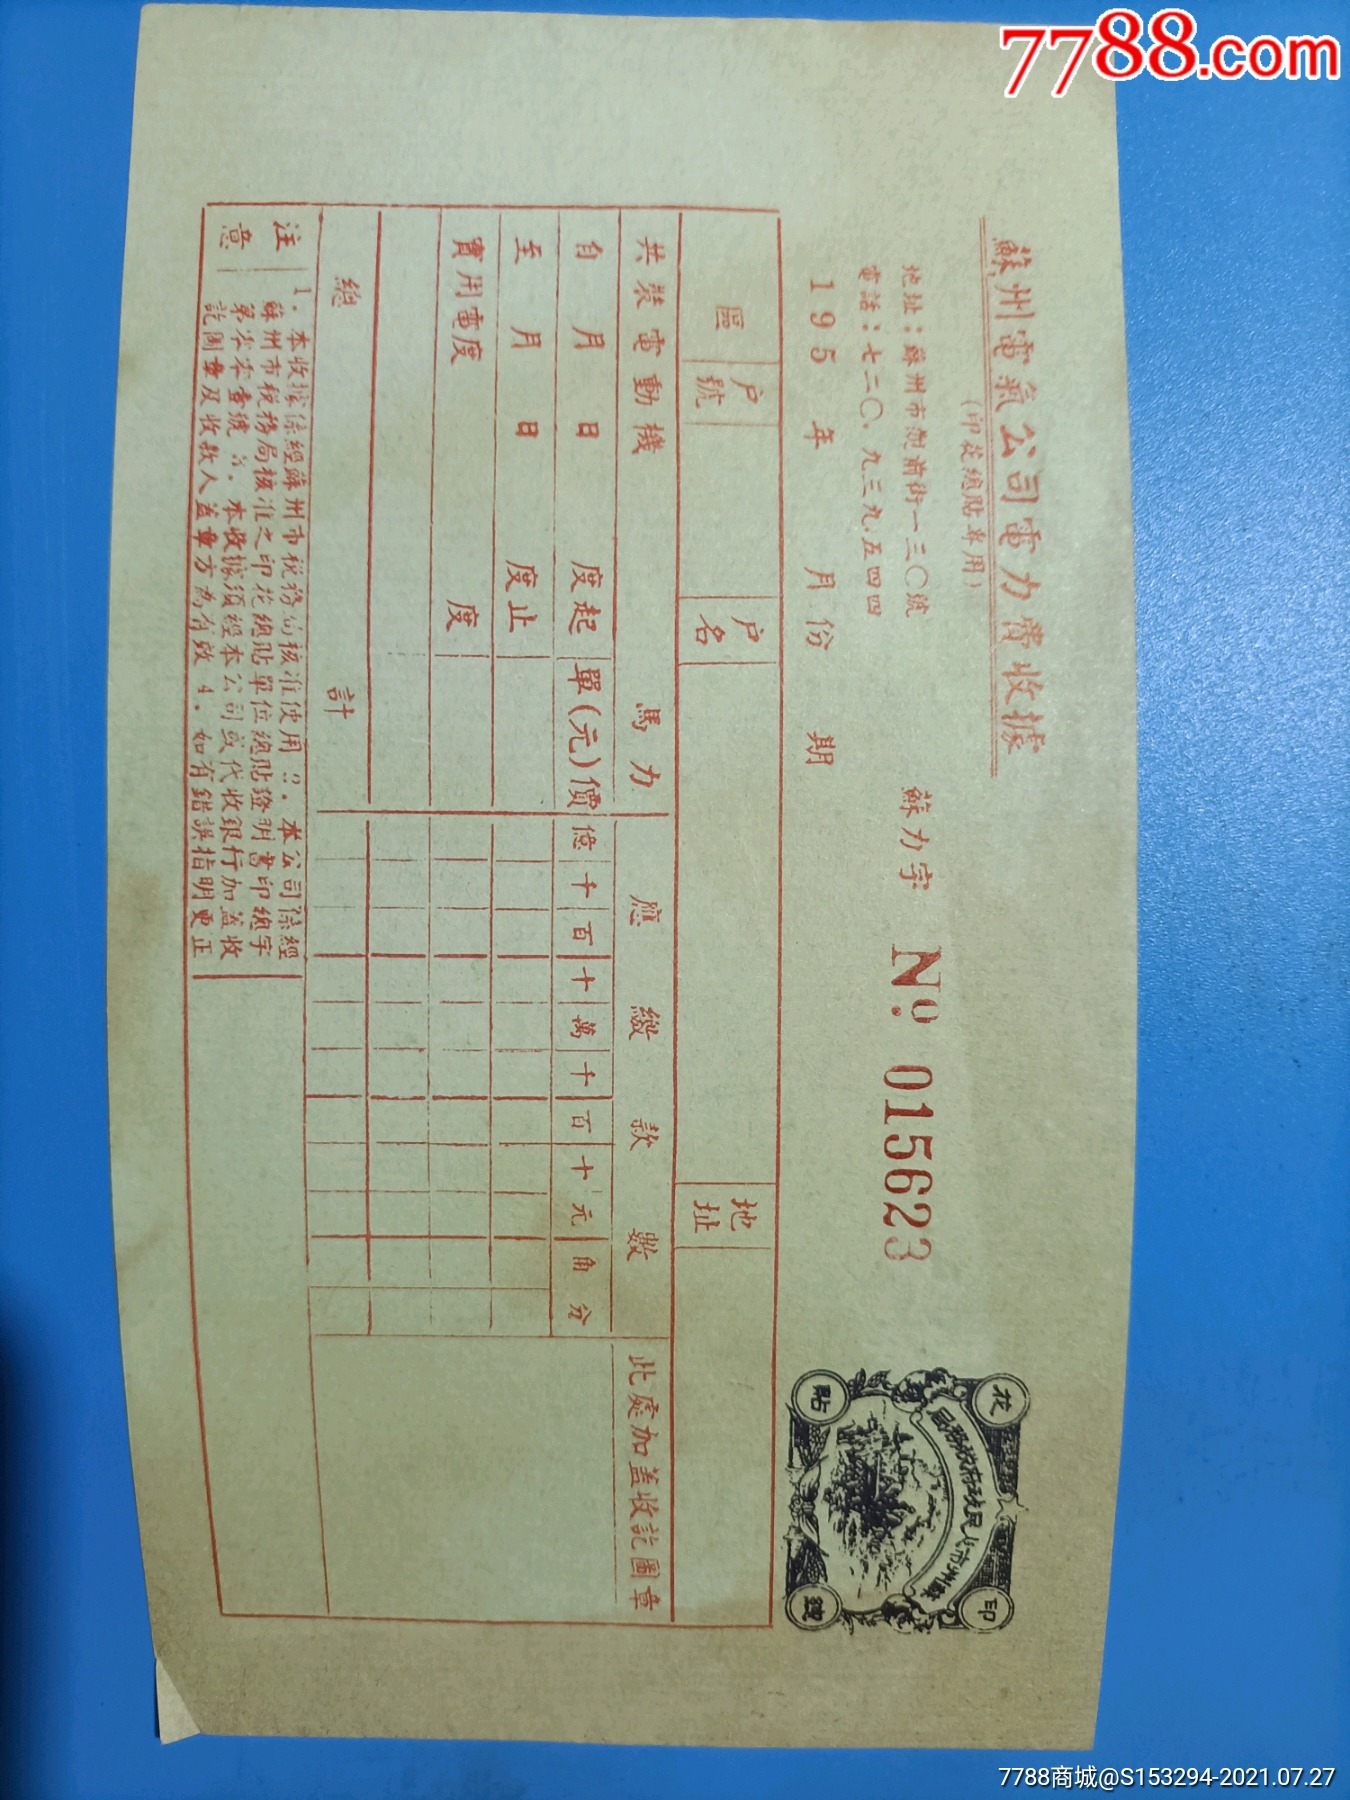 7788.com
蘇州電氣公司電力費收據
(印花總貼專用)
地址：蘇州市觀前街一三〇號
電話：七二〇．九三九．五四四
蘇力字 No. 015623
195 年 月份 期
花 印
蘇州市人民政府稅務局
貼 總
區 戶號 戶名 地址
共裝電動機 馬力 應繳款數 此處加蓋收訖圖章
自 月 日 度起 單(元)價 億 千 百 十 萬 千 百 十 元 角 分
至 月 日 度止
實用電度 度
總 計
注意
1. 本收據係經蘇州市稅務局核准使用 2. 本公司係經
蘇州市稅務局核准之印花總貼單位總貼證明書印總字
第零零壹號 3. 本收據須經本公司或代收銀行加蓋收
訖圖章及收款人蓋章方為有效 4. 如有錯誤指明更正
7788商城@S153294-2021.07.27